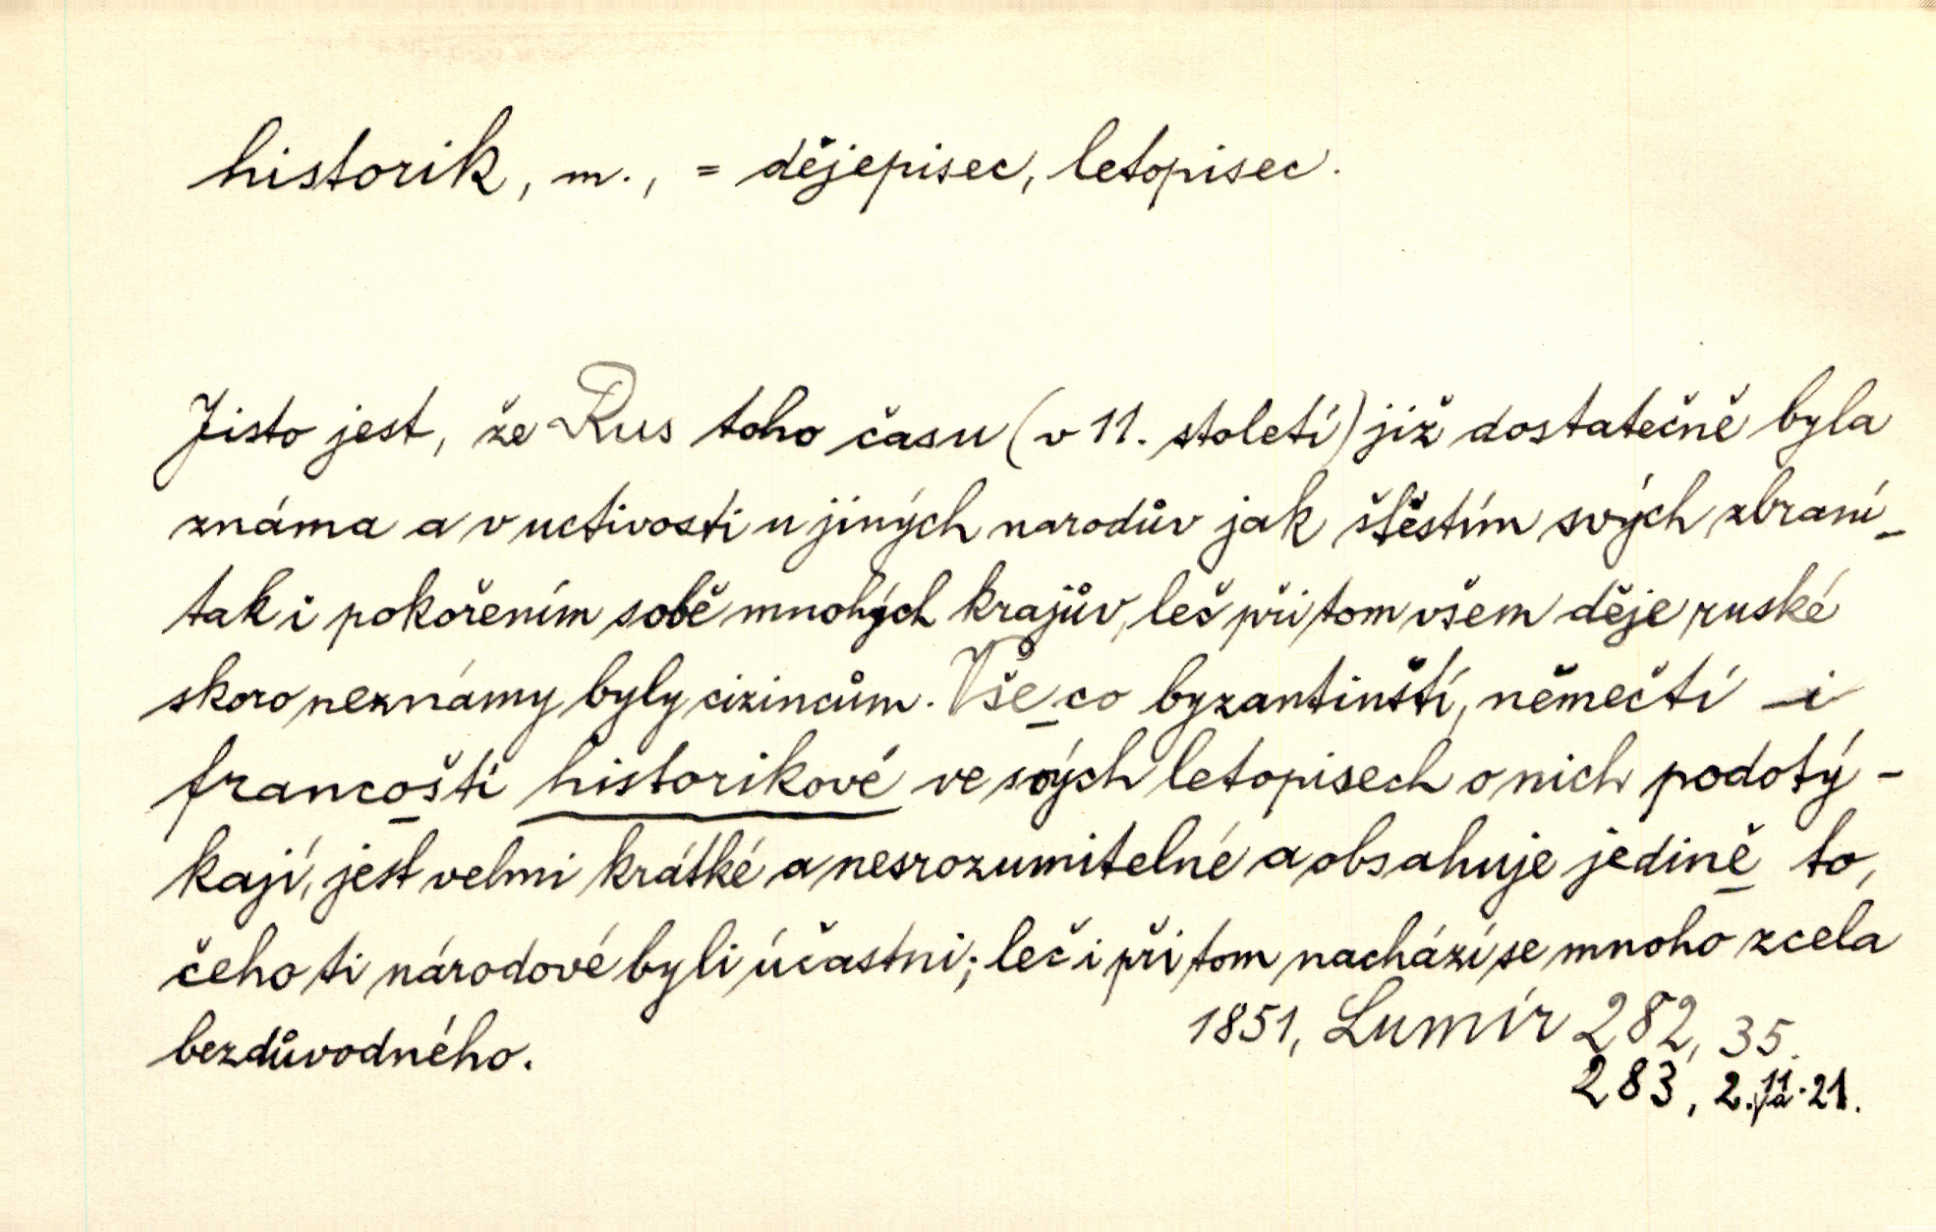 historik, m., = dějepisec, letopisec.
Jisto jest, že Rus toho času (v 11. století) již dostatečně byla
známa a v uctivosti u jiných narodův jak štěstím svých zbraní
tak i pokořením sobě mnohých krajův, leč při tom všem děje ruské
skoro neznámy byly cizincům. Vše co byzantinští, němečtí i
francoští historikové ve svých letopisech o nich podotý-
kají, jest velmi krátké a nesrozumitelné a obsahuje jedině to,
čeho ti národové byli účastni; leč i při tom nachází se mnoho zcela
bezdůvodného.
1851, Lumír 282, 35.
283, 2. 11. 21.